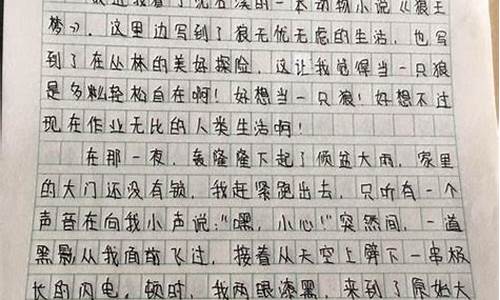 最近我看了沈石溪的一本动物小说《狼王
梦》，这里边写到了狼无优无虑的生活，也写
到了在丛林的美好探险，这让我觉得当一只狼
是多么轻松自在啊！好想当一只狼！好想不过
现在作业无比的人类生活啊！
在那一夜，轰隆隆下起了倾盆大雨，家里
的大门还没有锁，我赶紧跑出去，只听有一个
声音在向我小声说："嘿，小心！"突然间，一道
黑影从我面前飞过，接着从天空上劈下一串极
长的闪电，顿时，我两眼漆黑，来到了原始大